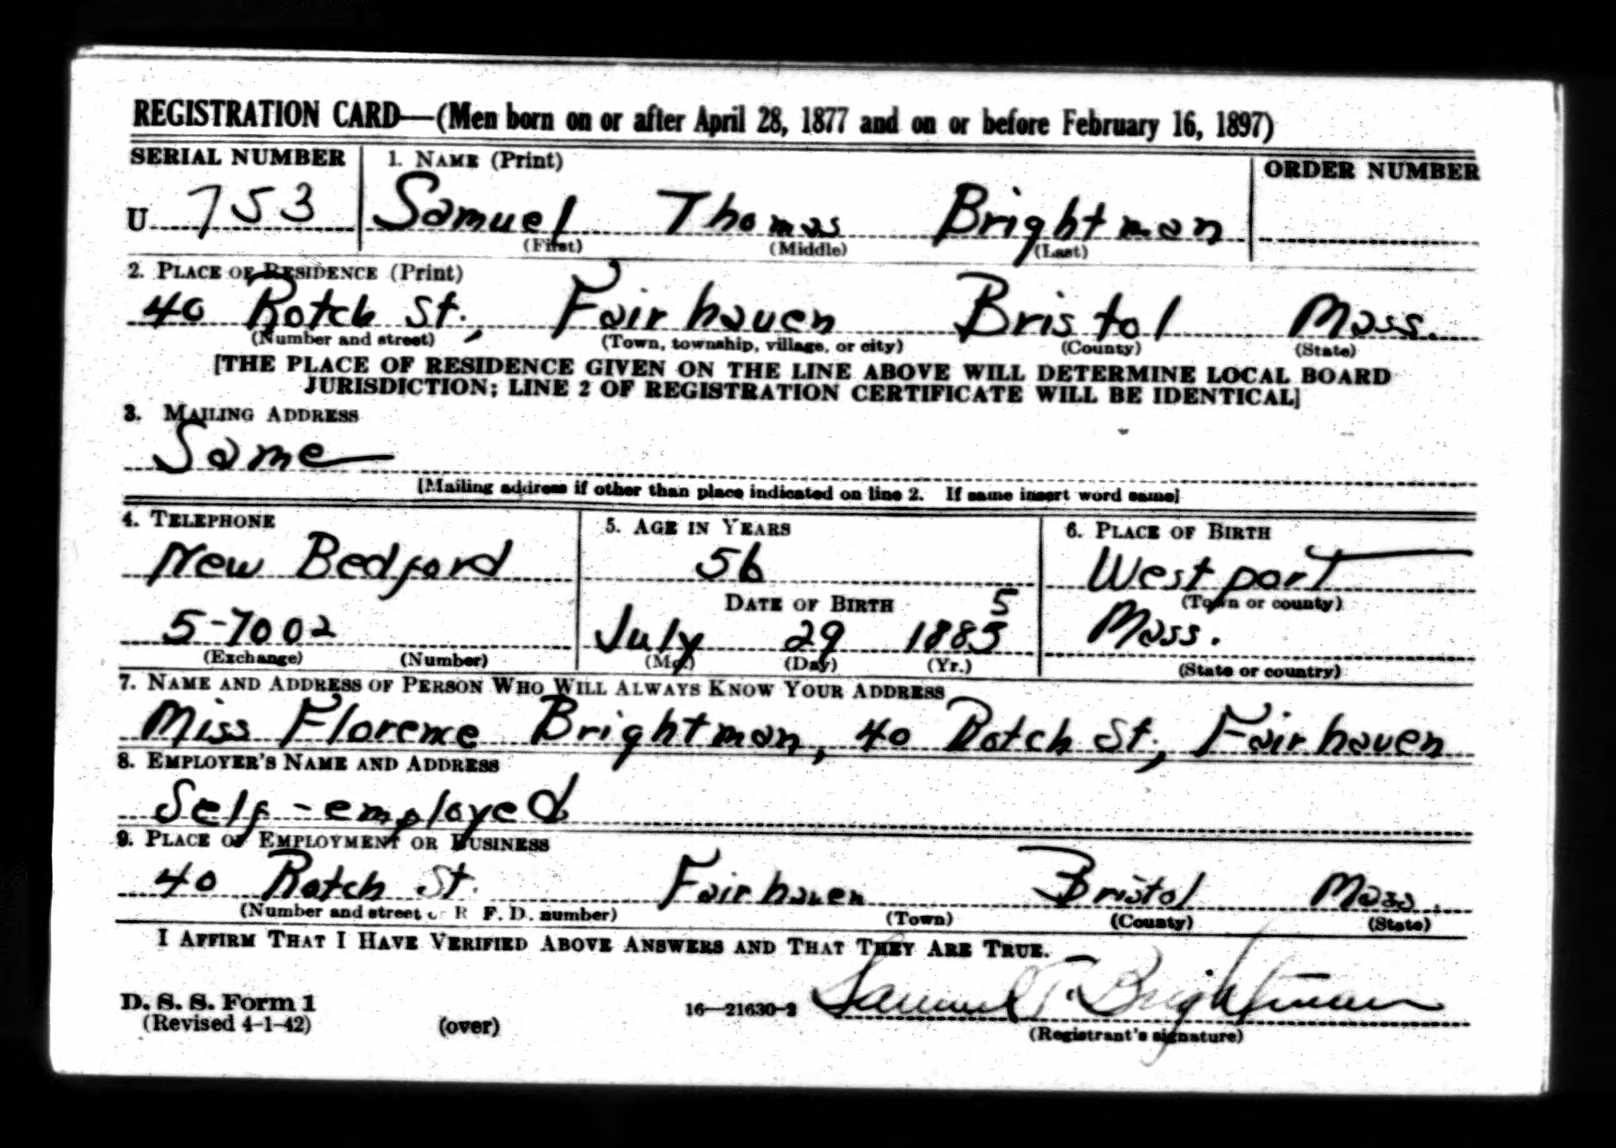 REGISTRATION CARD—(Men born on or after April 28, 1877 and on or before February 16, 1897)
SERIAL NUMBER 1. NAME (Print) ORDER NUMBER
U 753 Samuel Thomas Brightman
(First) (Middle) (Last)
2. PLACE OF RESIDENCE (Print)
40 Rotch St., Fairhaven Bristol Mass.
(Number and street) (Town, township, village, or city) (County) (State)
[THE PLACE OF RESIDENCE GIVEN ON THE LINE ABOVE WILL DETERMINE LOCAL BOARD
JURISDICTION; LINE 2 OF REGISTRATION CERTIFICATE WILL BE IDENTICAL]
3. MAILING ADDRESS
Same
[Mailing address if other than place indicated on line 2. If same insert word same]
4. TELEPHONE 5. AGE IN YEARS 6. PLACE OF BIRTH
New Bedford 56 Westport
DATE OF BIRTH 5 (Town or county)
5-7002 July 29 1885 Mass.
(Exchange) (Number) (Mo.) (Day) (Yr.) (State or country)
7. NAME AND ADDRESS OF PERSON WHO WILL ALWAYS KNOW YOUR ADDRESS
Miss Florence Brightman, 40 Rotch St., Fairhaven
8. EMPLOYER'S NAME AND ADDRESS
Self-employed
9. PLACE OF EMPLOYMENT OR BUSINESS
40 Rotch St. Fairhaven Bristol Mass.
(Number and street or R. F. D. number) (Town) (County) (State)
I AFFIRM THAT I HAVE VERIFIED ABOVE ANSWERS AND THAT THEY ARE TRUE.
D. S. S. Form 1 16—21630-2 Samuel T. Brightman
(Revised 4-1-42) (over) (Registrant's signature)